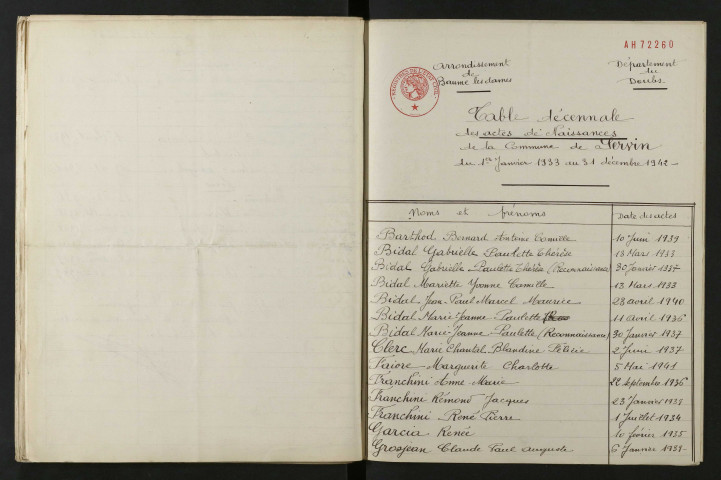 AH 72260
Arrondissement
de
Baume les dames
Département
du
Doubs
Table décennale
des actes de Naissances
de la Commune de Servin
du 1er Janvier 1933 au 31 décembre 1942
Noms et prénoms Date des actes
Barthod Bernard Antoine Camille 10 Juin 1939
Bidal Gabrielle Paulette Thérèse 13 Mars 1933
Bidal Gabrielle Paulette Thérèse (Reconnaissance) 30 Janvier 1937
Bidal Mariette Yvonne Camille 13 Mars 1933
Bidal Jean Paul Marcel Maurice 28 avril 1940
Bidal Marie-Jeanne Paulette 11 avril 1936
Bidal Marie-Jeanne Paulette (Reconnaissance) 30 Janvier 1937
Clerc Marie Chantal Blandine Félicie 2 Juin 1937
Faivre Marguerite Charlotte 5 Mai 1941
Franchini Anne Marie 22 Septembre 1936
Franchini Rémond Jacques 23 Janvier
Franchini René Pierre 1 Juillet 1934
Garcia Renée 10 février 1935
Grosjean Claude Paul Auguste 6 Janvier